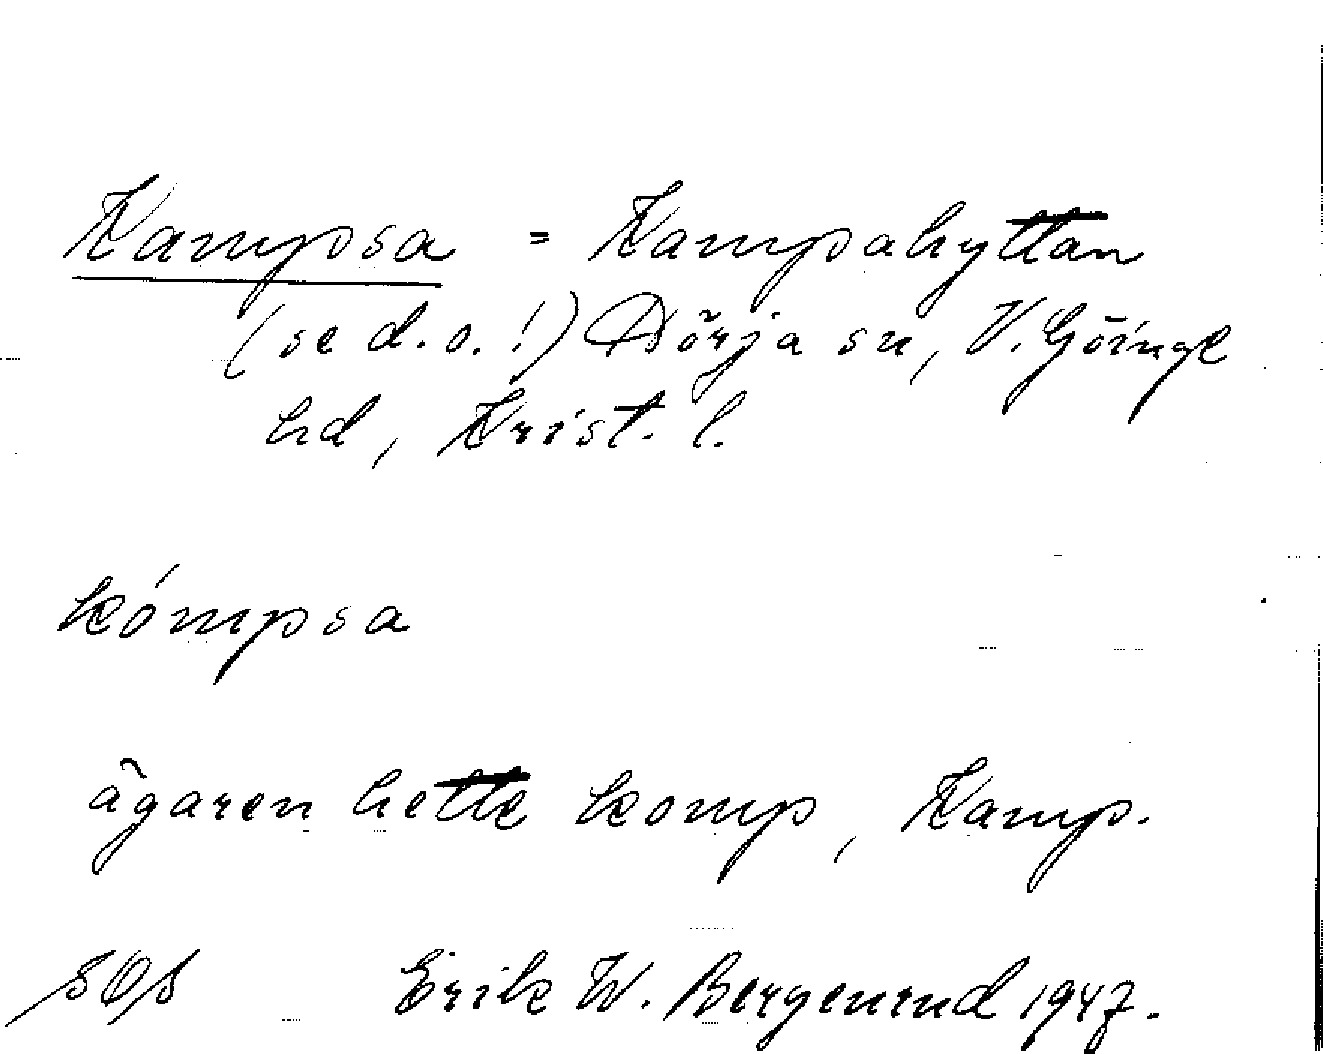 Kampsa = Kampahyttan
(se d.o.!) Dörja sn, V. Göinge
hd, Krist. l.
kómpsa
ägaren hette komp, Kamp.
Erik W. Bergenrud 1947.